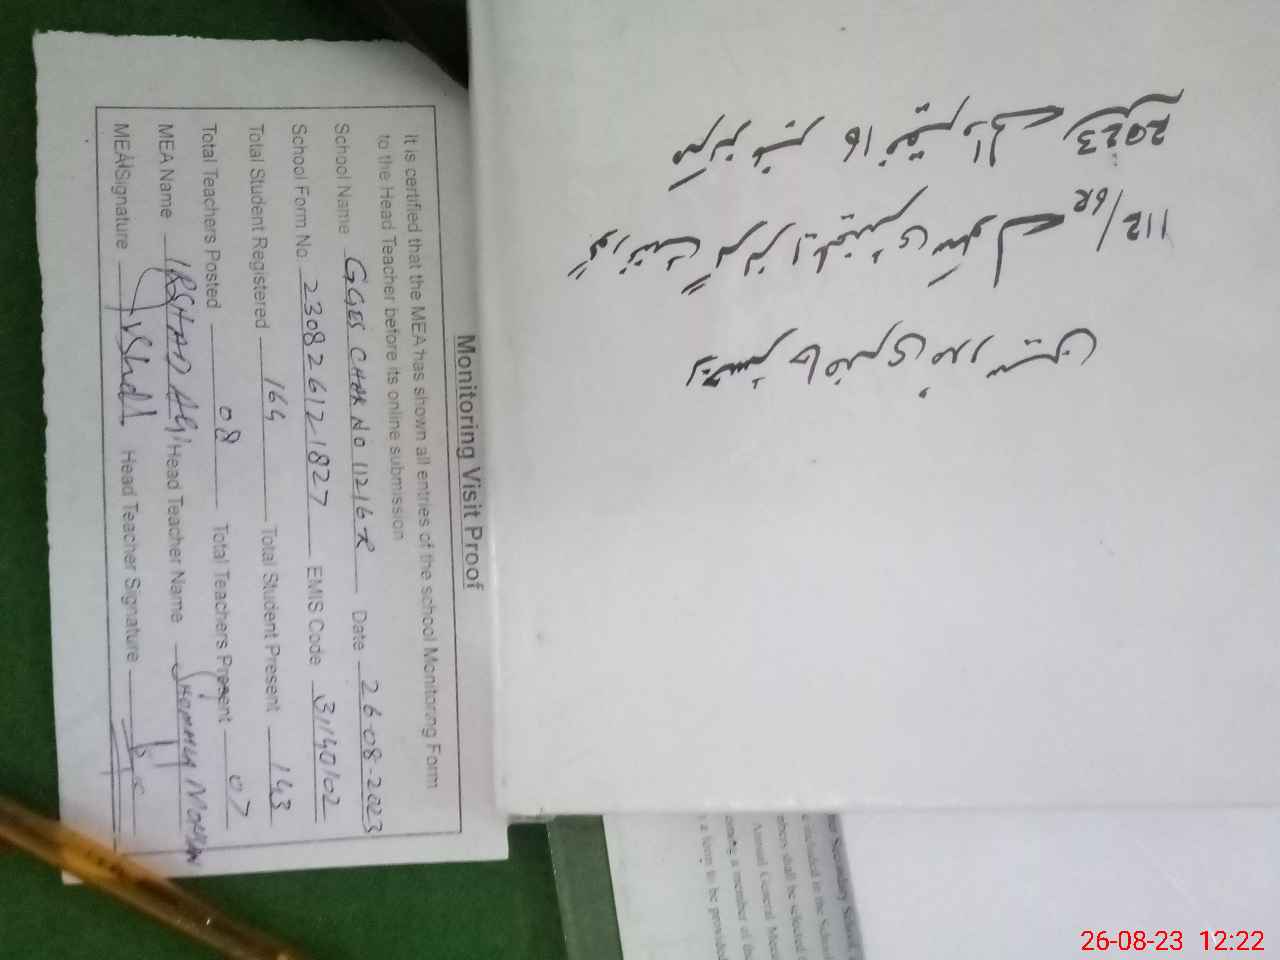 Monitoring Visit Proof
It is certified that the MEA has shown all entries of the school Monitoring Form
to the Head Teacher before its online submission
School Name GGES CHAK NO 112/6-R Date 26-08-2023
School Form No. 23082612 1827 EMIS Code 31140102
Total Student Registered 164 Total Student Present 143
Total Teachers Posted 08 Total Teachers Present 07
MEA Name IRSHAD ALI Head Teacher Name
MEA Signature Head Teacher Signature
رجسٹر حاضری مدرسین
گورنمنٹ گرلز ایلیمنٹری سکول 112/6R
2023
Secondary School
included in the School
shall be selected
Annual General
a member of the
a form to be provided
26-08-23 12:22